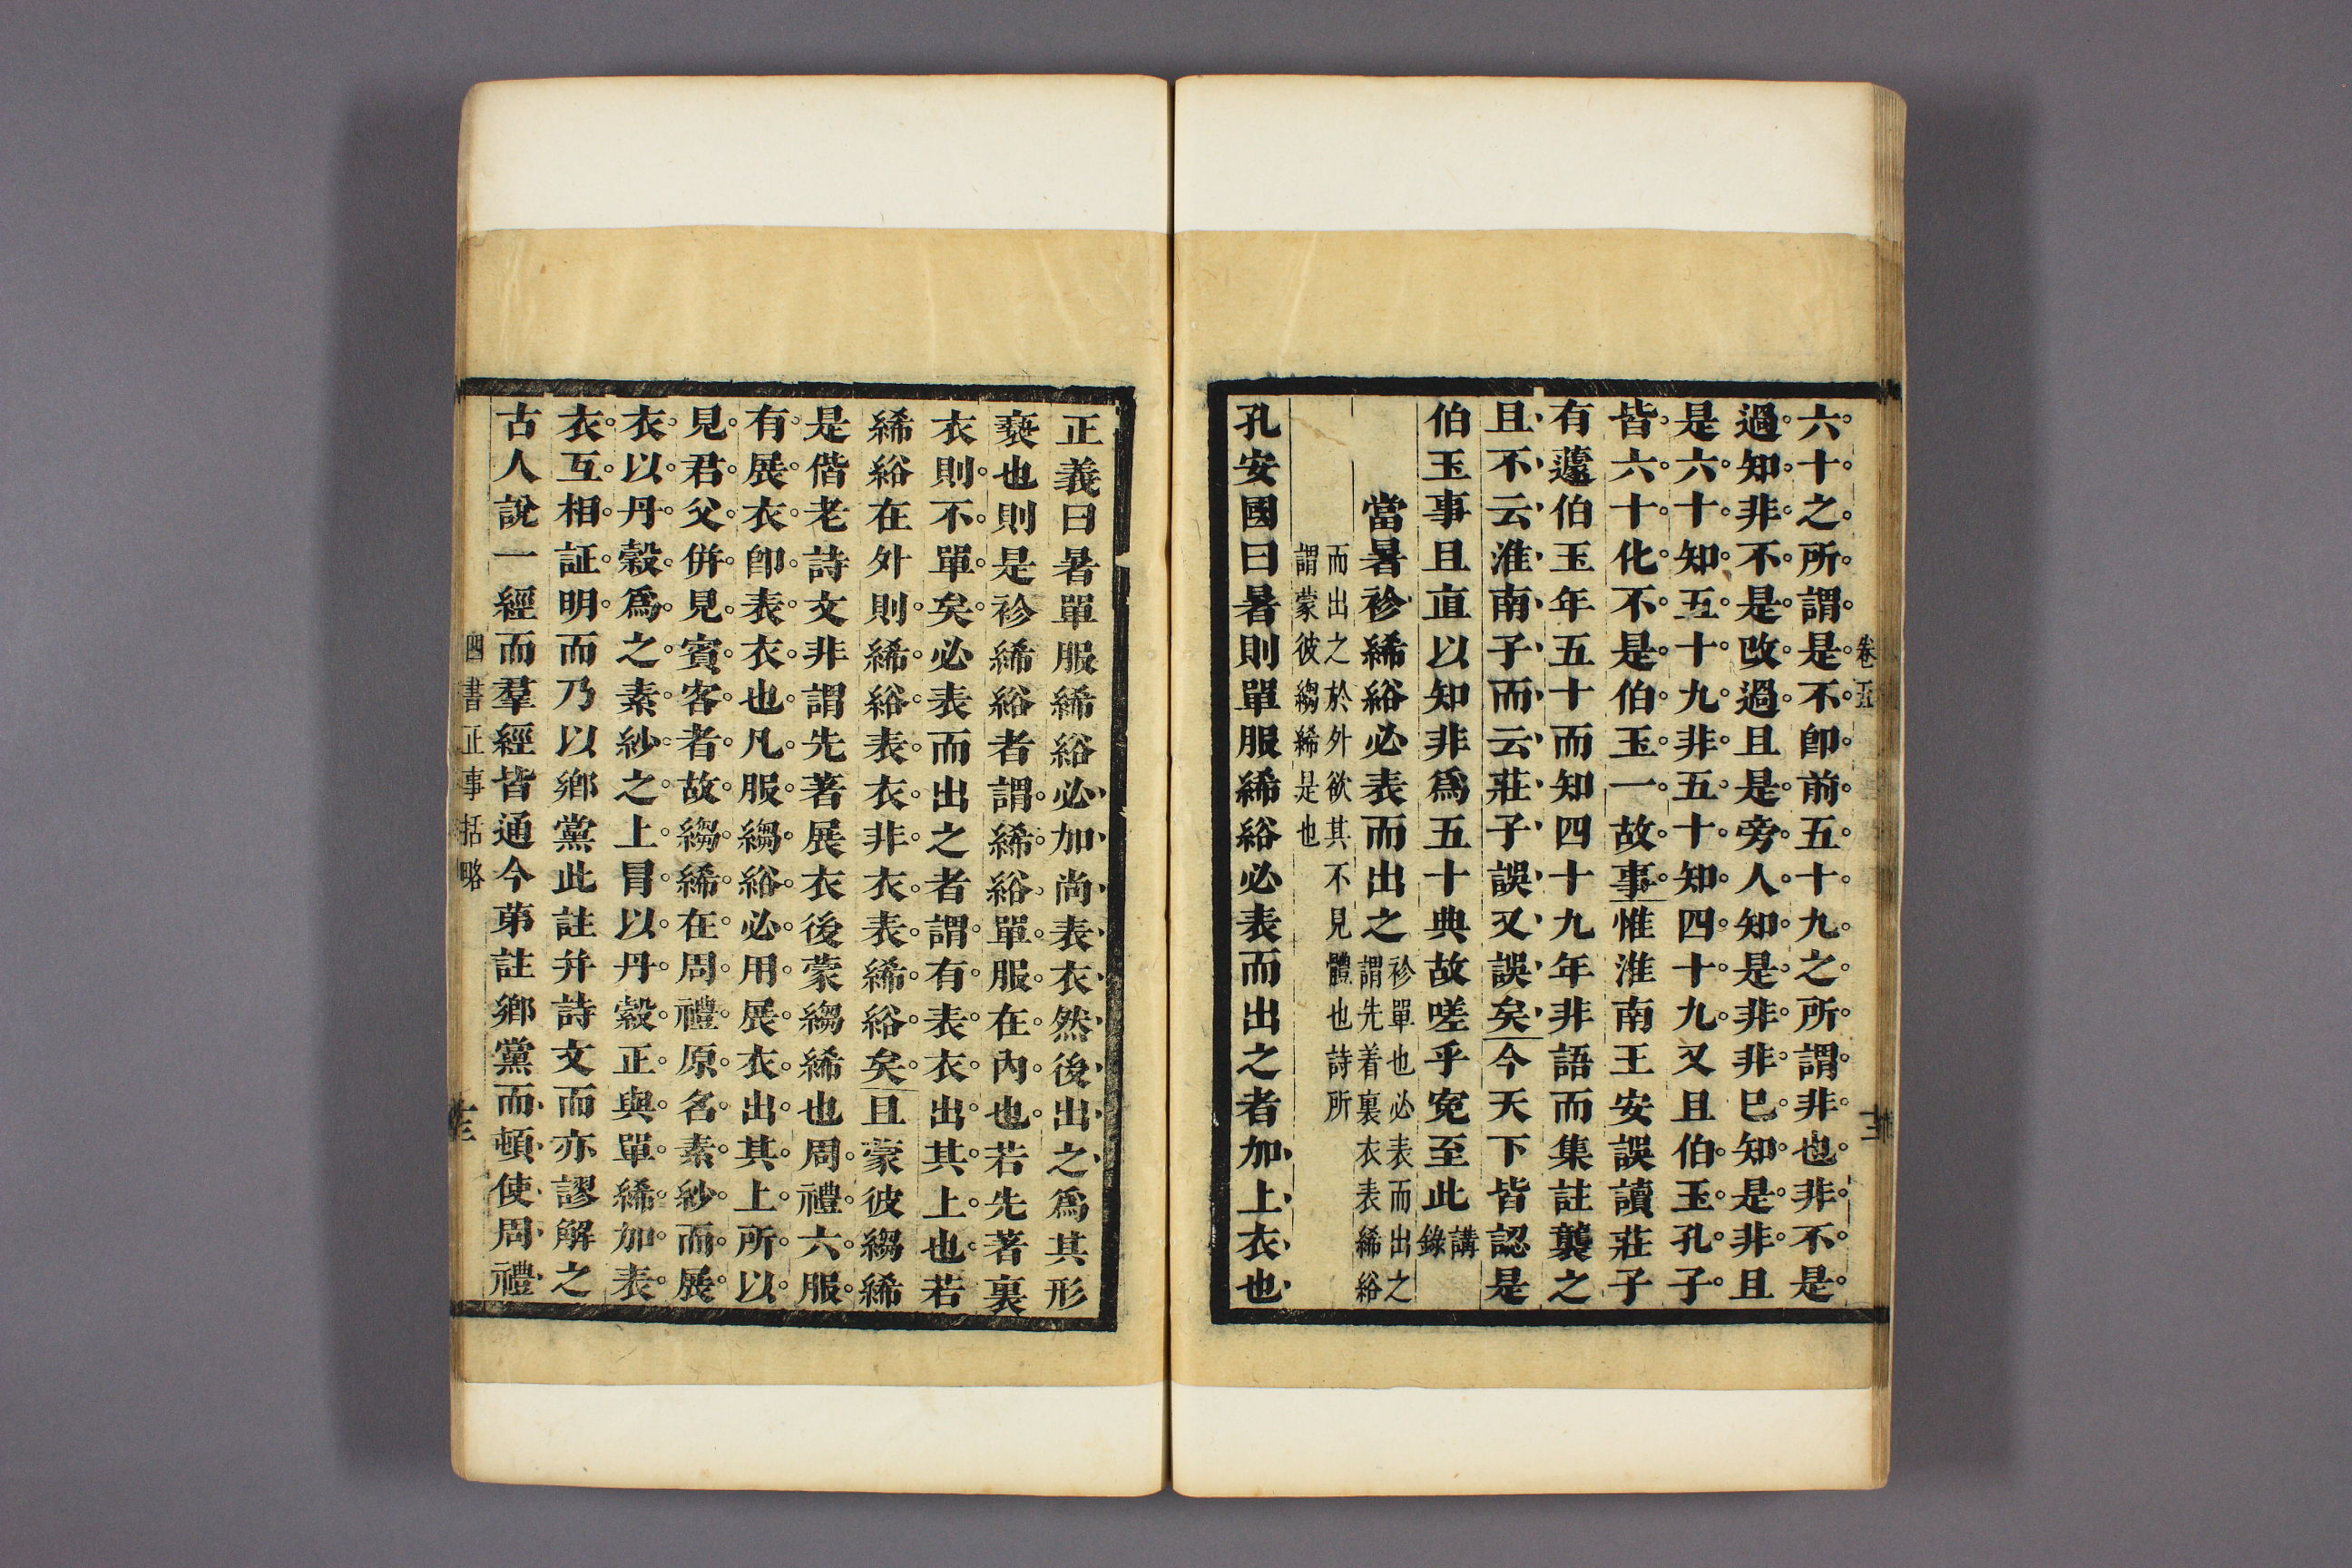 卷五
六十之所謂是不卽前五十九之所謂非也非不是
過知非不是改過且是旁人知是非非已知是非且
是六十知五十九非五十知四十九又且伯玉孔子
皆六十化不是伯玉一故事惟淮南王安誤讀莊子
有蘧伯玉年五十而知四十九年非語而集註襲之
且不云淮南子而云莊子誤又誤矣今天下皆認是
伯玉事且直以知非爲五十典故嗟乎寃至此講
錄
當暑袗絺綌必表而出之袗單也必表而出之
謂先着裏衣表絺綌
而出之於外欲其不見體也詩所
謂蒙彼縐絺是也
孔安國曰暑則單服絺綌必表而出之者加上衣也
正義曰暑單服絺綌必加尚表衣然後出之爲其形
褻也則是袗絺綌者謂絺綌單服在內也若先著裏
衣則不單矣必表而出之者謂有表衣出其上也若
絺綌在外則絺綌表衣非衣表絺綌矣且蒙彼縐絺
是偕老詩文非謂先著展衣後蒙縐絺也周禮六服
有展衣卽表衣也凡服縐綌必用展衣出其上所以
見君父併見賓客者故縐絺在周禮原名素紗而展
衣以丹縠爲之素紗之上冒以丹縠正與單絺加表
衣互相証明而乃以鄉黨此註幷詩文而亦謬解之
古人說一經而羣經皆通今第註鄉黨而頓使周禮
四書正事括略